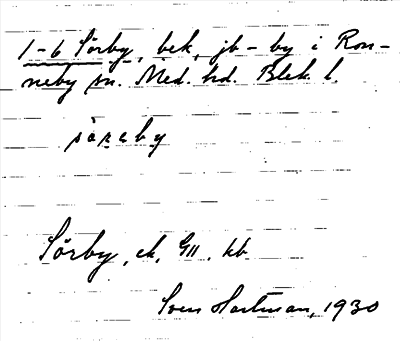 1-6 Sörby, bek, jb-by i Ron-
neby sn. Med. hd. Blek. l.
Sörby, ek, GII, kb
Sven Hartman, 1930